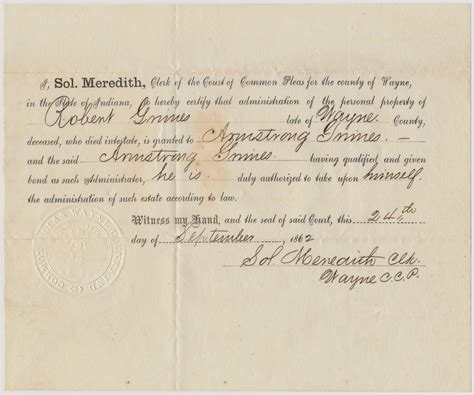 I, Sol. Meredith, Clerk of the Court of Common Pleas for the county of Wayne,
in the State of Indiana, do hereby certify that administration of the personal property of
Robert Grimes late of Wayne County,
deceased, who died intestate, is granted to Armstrong Grimes. —
and the said Armstrong Grimes having qualified and given
bond as such Administrator, he is duly authorized to take upon himself
the administration of such estate according to law.
Witness my Hand, and the seal of said Court, this 24th
day of September 1862
Sol. Meredith Clk.
Wayne C.C.P.
WAYNE COUNTY
COMMON